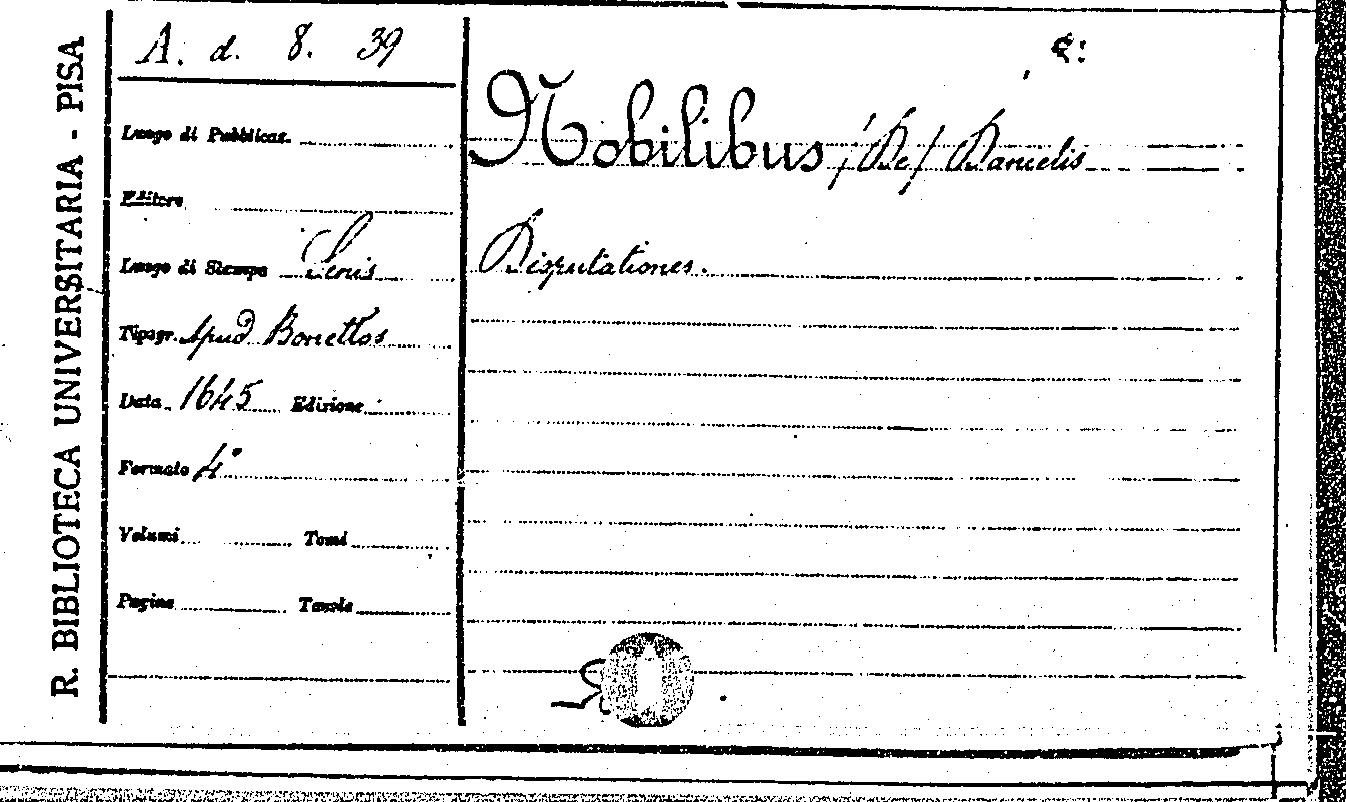 R. BIBLIOTECA UNIVERSITARIA - PISA
A. d. 8. 39
Luogo di Pubblicaz.
Editore
Luogo di Stampa Senis
Tipogr. Apud Bonettos
Data 1645 Edizione
Formato 4°
Volumi Tomi
Pagine Tavole
Nobilibus /De/ Danielis
Disputationes.